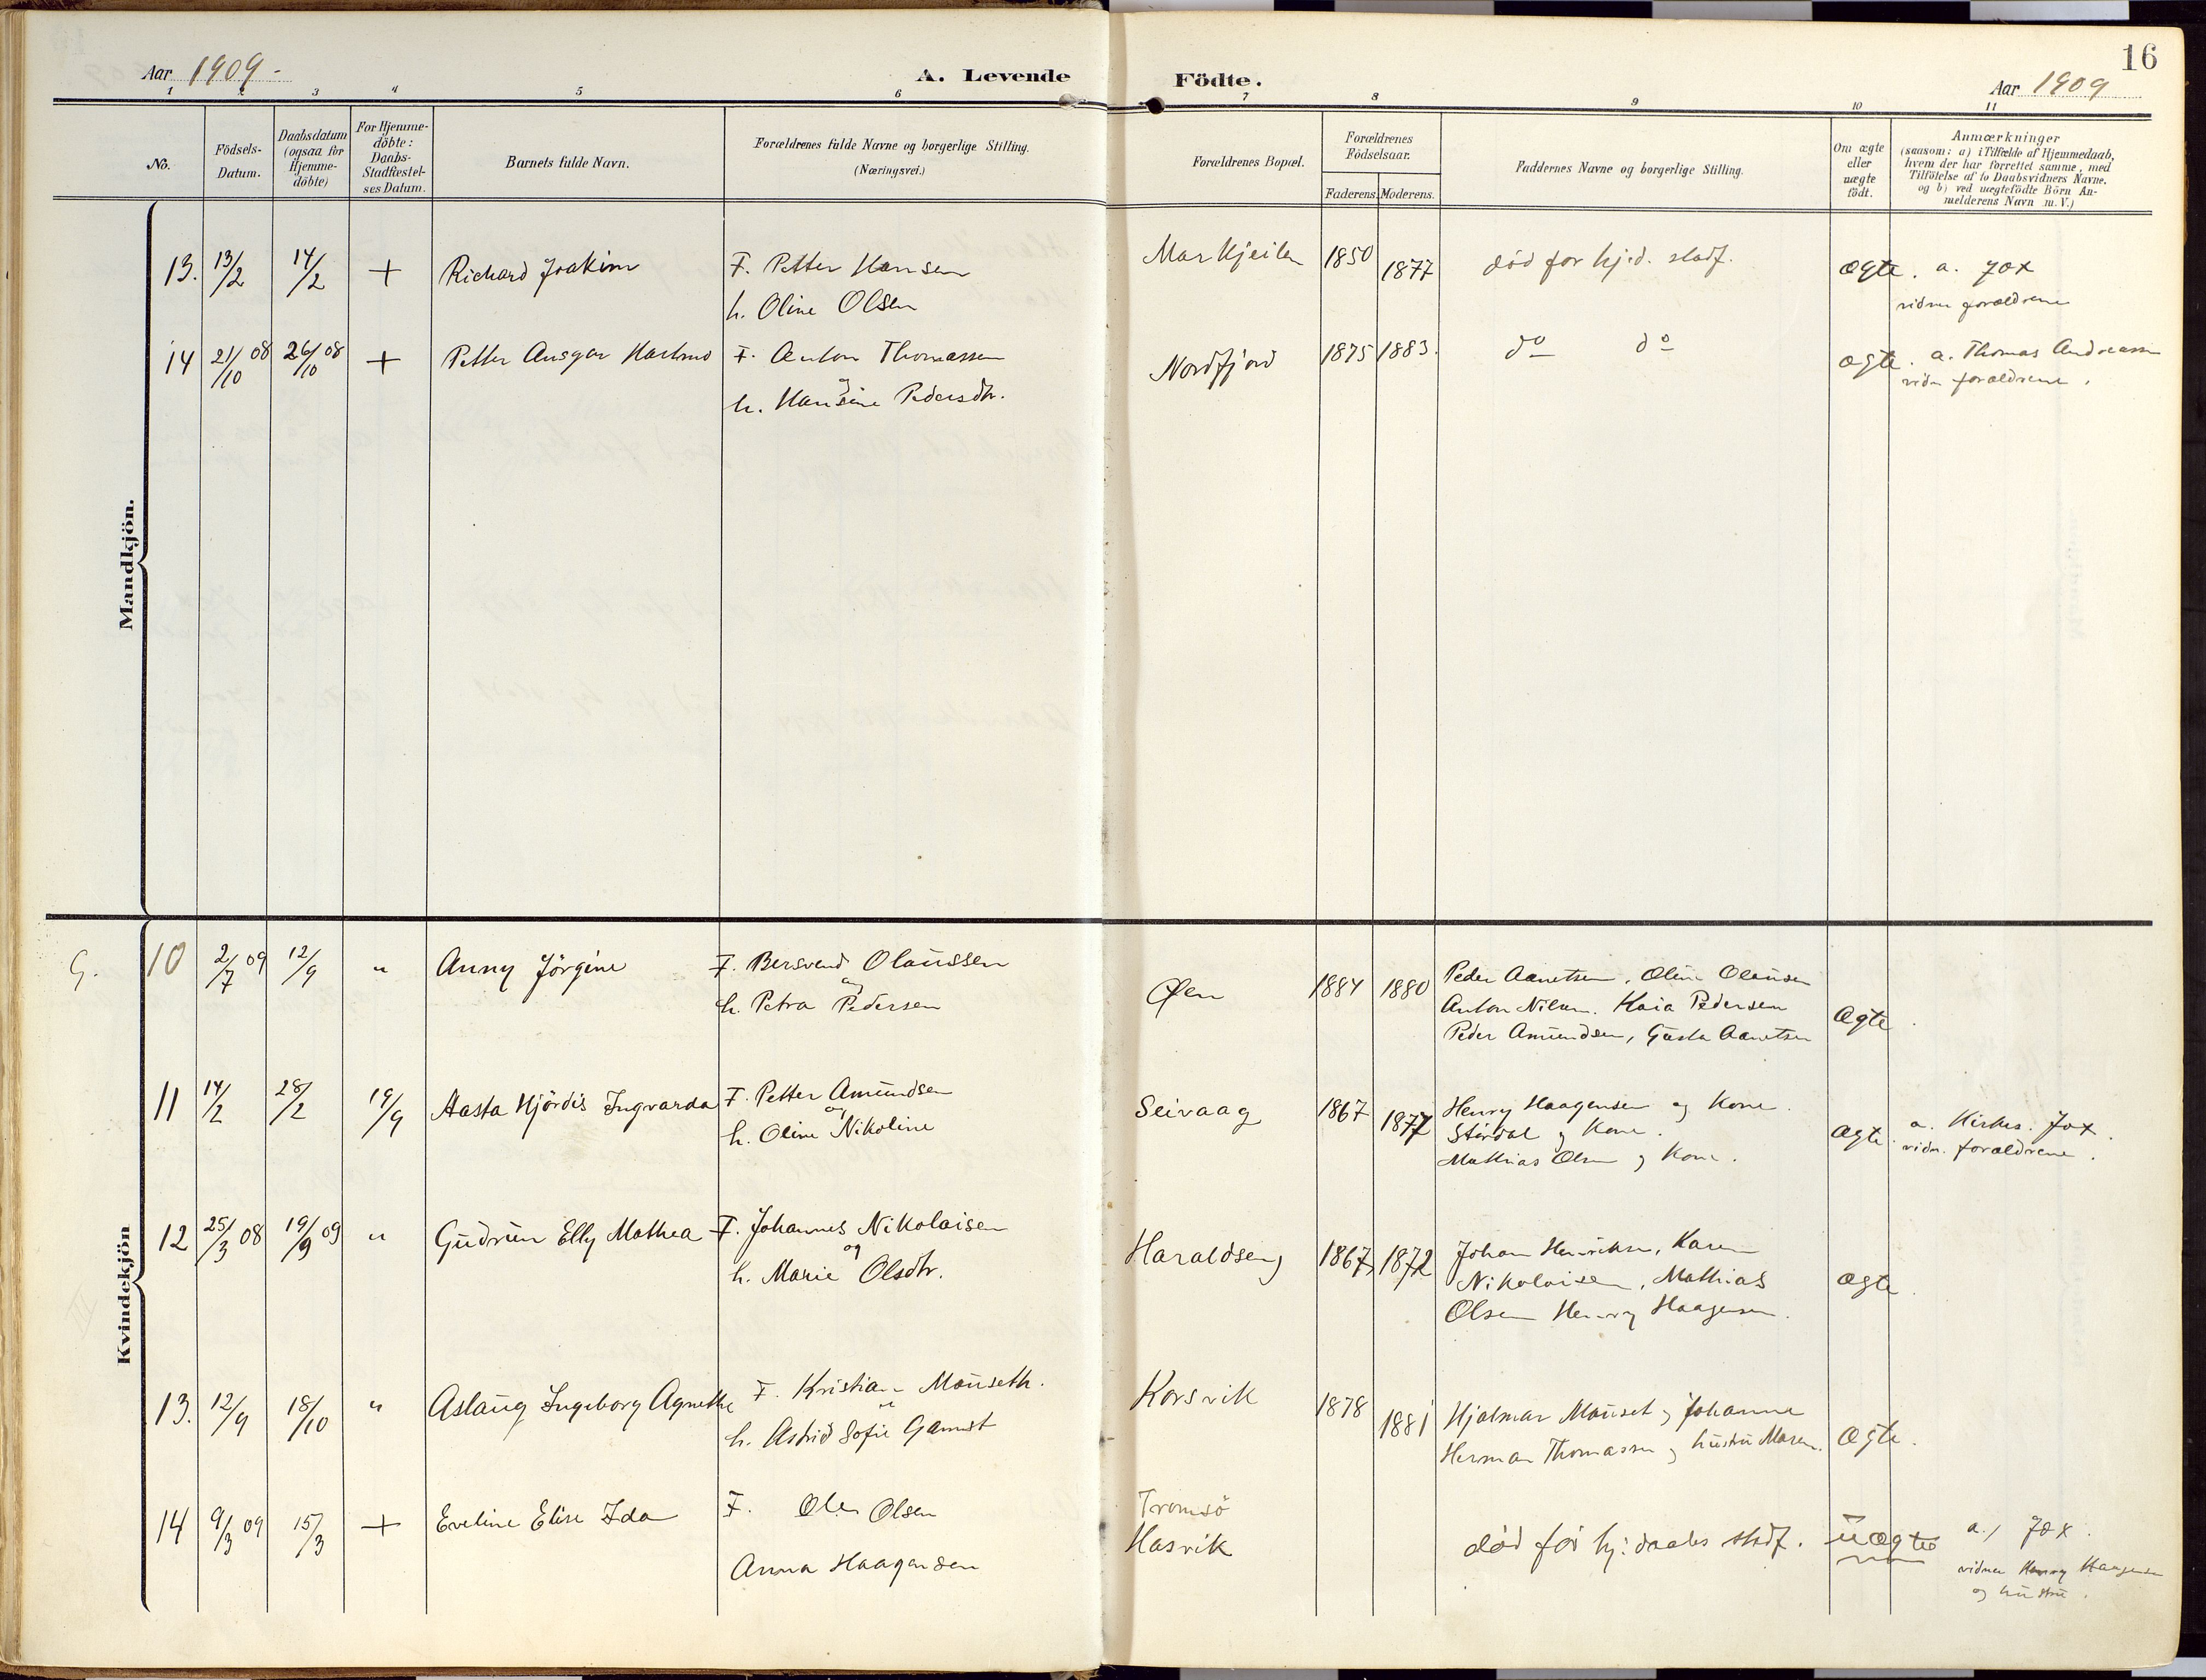 16
Aar 1909 - A. Levende Födte. Aar 1909
1 2 3 4 5 6 7 8 9 10 11
No. Födsels-Datum. Daabsdatum (ogsaa for Hjemme-döbte) For Hjemme-döbte: Daabs-Stadfæstel-ses Datum. Barnets fulde Navn. Forældrenes fulde Navne og borgerlige Stilling. (Næringsvei.) Forældrenes Bopæl. Forældrenes Födselsaar. Faderens. Moderens. Faddernes Navne og borgerlige Stilling. Om ægte eller uægte födt. Anmærkninger (saasom: a) i Tilfælde af Hjemmedaab, hvem der har forrettet samme, med Tilföielse af to Daabsvidners Navne, og b) ved uægtefödte Börn An-melderens Navn m. V.)
Mandkjön.
13. 13/2 14/2 + Richard Joakim F. Petter Hansen Markjeilen 1850 1877 död for hj.d. stadf. ægte. a. Jox
h. Oline Olsen vidner forældrene
14 21/10 08 26/10 08 + Petter Ansgar Hartmo F. Anton Thomassen Nordfjord 1875 1883. do do ægte. a. Thomas Andreassen
og
h. Hansine Pedersdtr. vidn forældrene.
Kvindekjön
G. 10 2/7 09 12/9 " Anny Jörgine F. Bersvend Olaussen Øen 1884 1880 Peder Aanetsen, Olin Olausen
og
h. Petra Pedersen Anton Nilsen. Kaia Pedersen ægte.
Peder Amundsen, Gusta Aanetsen
11 14/2 28/2 19/9 Aasta Hjördis Ingvarda F. Petter Amundsen Seivaag 1867 1877 Henry Haagensen og Kone.
og
h. Oline Nikoline Stördal og Kone. ægte. a. Kirkes. Jox.
Mathias Olsen og Kone. vidn. forældrene.
12 25/3 08 19/9 09 " Gudrun Elly Mathea F. Johannes Nikolaisen Haraldseng 1867 1872 Johan Henriksen, Karen
og
h. Marie Olsdtr. Nikolaisen, Mathias ægte.
Olsen Henry Haagensen.
13. 12/9 18/10 " Aslaug Ingeborg Agnethe F. Kristian Mauseth. Korsvik 1878 1881 Hjalmar Mauset og Johanne
"
h. Astrid Sofie Gamst Herman Thomassen og hustru Maren. ægte.
14 9/3 09 15/3 + Eveline Elise Ida F. Ole Olsen Tromsö
Anna Haagensen Hasvik död för hj: daabs stadf. uægte a., Jox.
vidner Henry Haagensen
og hustru.